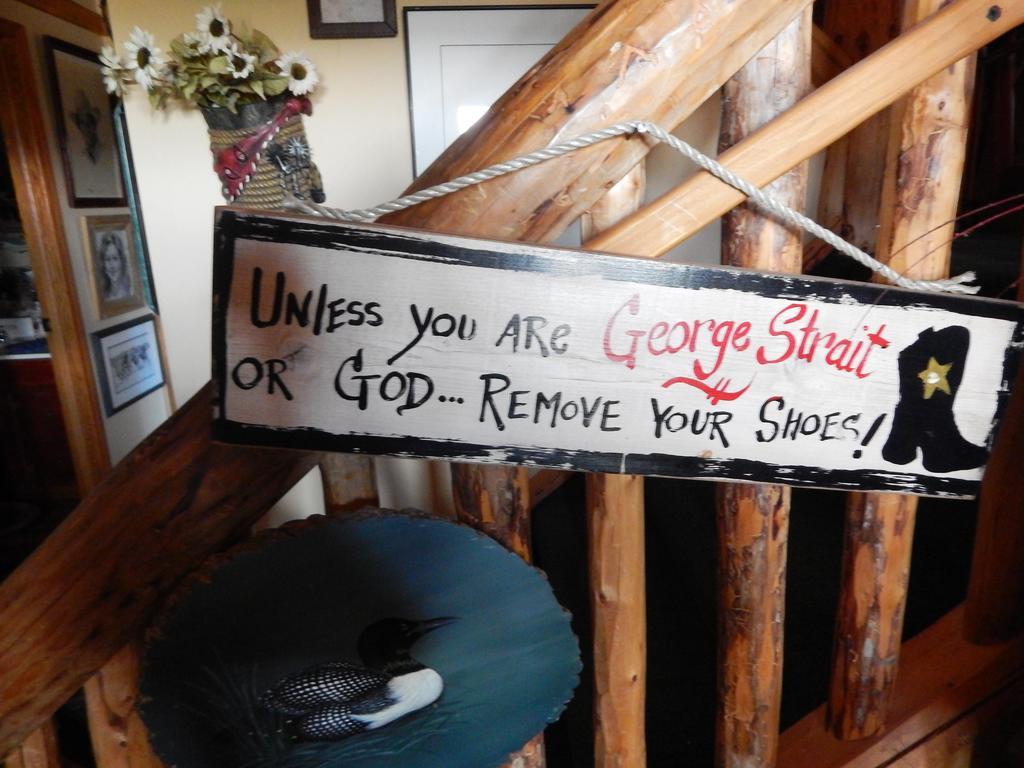 UNlESS YOU ARe George Strait
OR GOD... REMOVE YOUR SHOES!